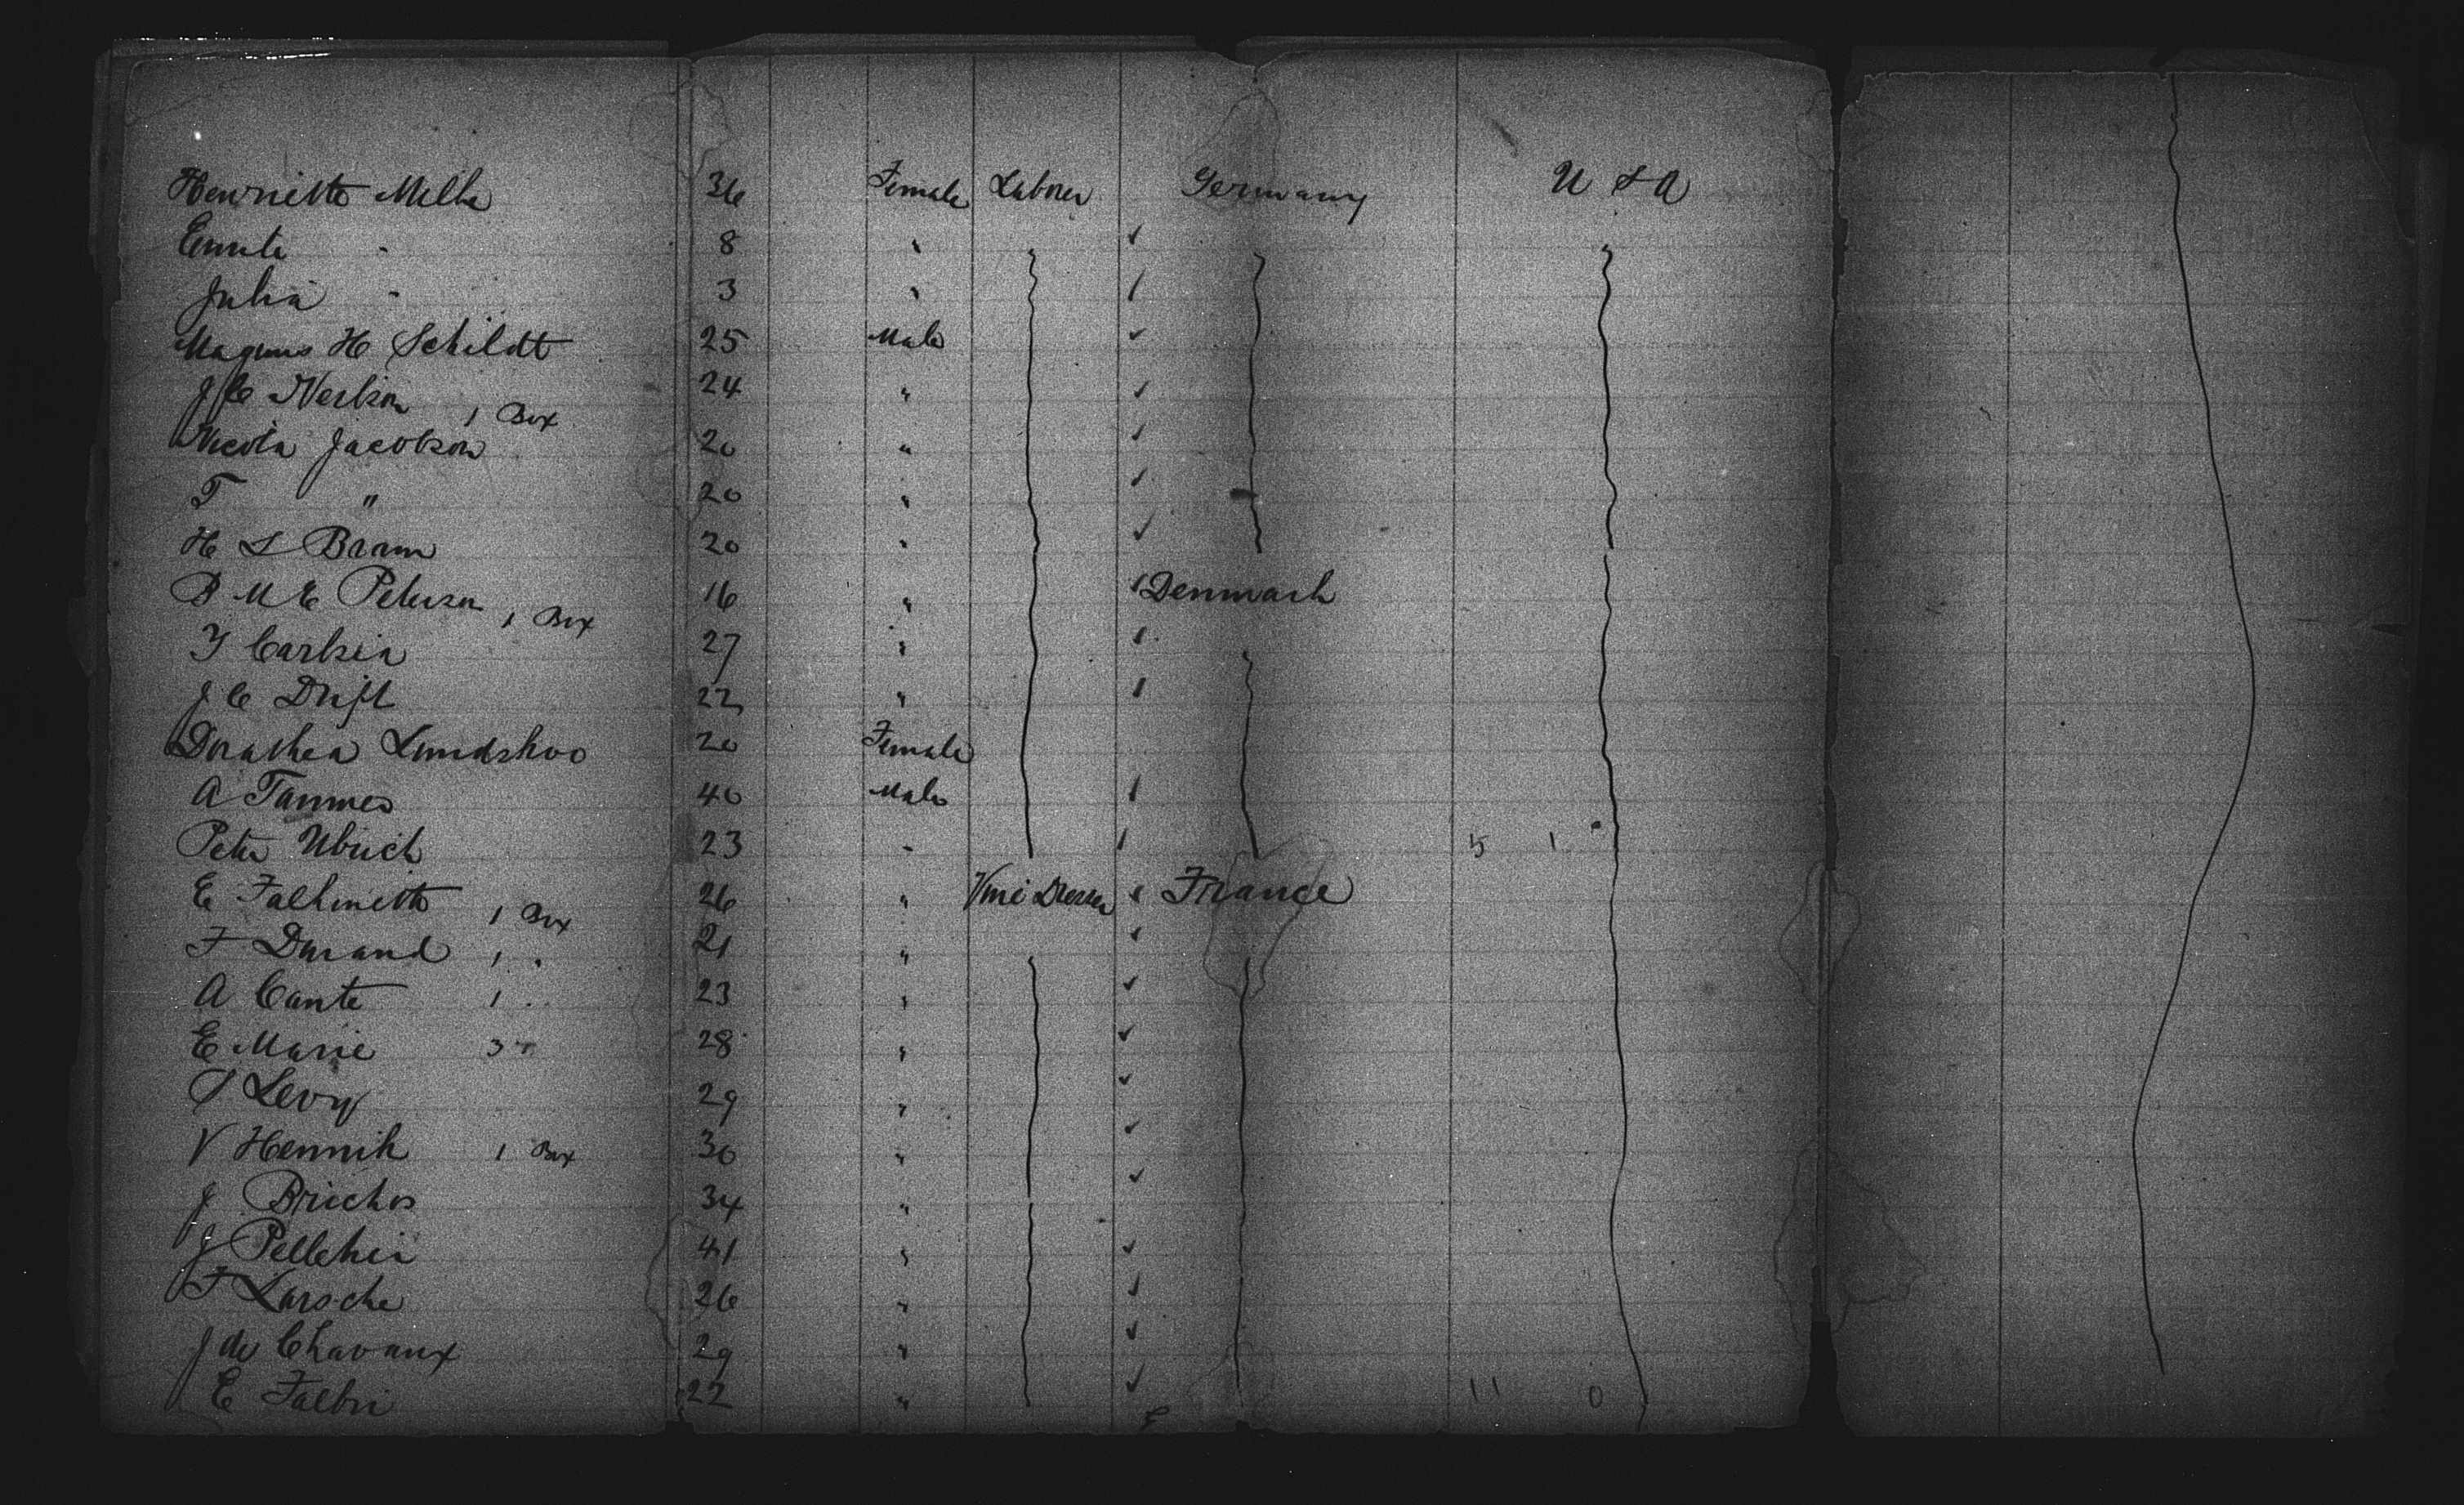 Henriette Melke 36 Female Laborer Germany U S A
Emile " 8 "
Julia " 3 "
Magnus H Schildt 25 Male
J C Neilson 1 Box 24 "
Nicola Jacobson 20 "
T " 20 "
H S Braun 20 "
B M E Peterson 1 Box 16 " Denmark
Y Carlsen 27 "
J C Drift 22 "
Dorathea Lundskoo 20 Female
A Tammes 40 Male
Peter Ubrich 23 " 5 1
E Falhinette 1 Box 26 " Vine Dresser France
F Durand 1 " 21 "
A Cante 1 " 23 "
E Marie 3 " 28 "
S Levy 29 "
V Hennik 1 Box 30 "
J Brichos 34 "
J Pelletier 41 "
F Larsche 26 "
J de Chavaux 29 "
E Falbri 22 " 11 0